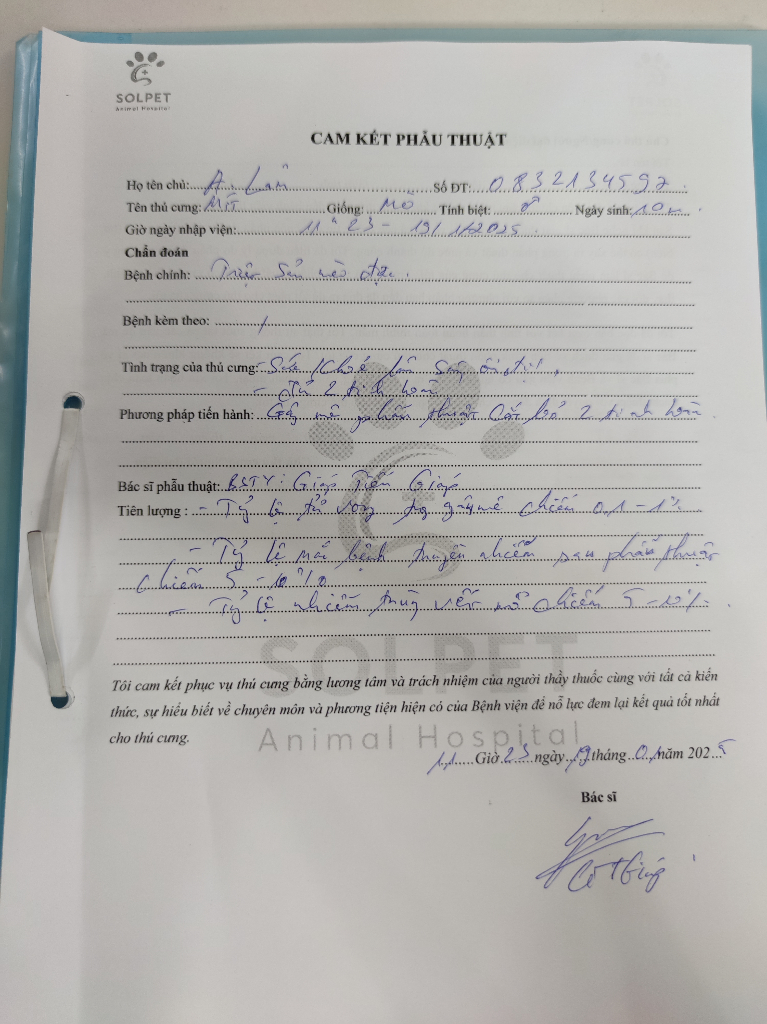 SOLPET
Animal Hospital
CAM KẾT PHẪU THUẬT
Họ tên chủ: A. Lâm Số ĐT: 0832134597
Tên thú cưng: Mít Giống: Mèo Tính biệt: ♂ Ngày sinh: 10
Giờ ngày nhập viện: 11h23 - 19/1/2025
Chẩn đoán
Bệnh chính: Triệt Sản mèo đực.
Bệnh kèm theo: /
Tình trạng của thú cưng: - Sức khoẻ lâm sàng ổn định.
- Đủ 2 tinh hoàn
Phương pháp tiến hành: Gây mê phẫu thuật cắt bỏ 2 tinh hoàn.
Bác sĩ phẫu thuật: BSTY: Giáp Tiến Giáp
Tiên lượng : - Tỷ lệ tử vong gây mê chiếm 0,1 - 1%
- Tỷ lệ mắc bệnh truyền nhiễm sau phẫu thuật
chiếm 5 - 10%
- Tỷ lệ nhiễm trùng vết mổ chiếm 5 - 10%.
SOLPET
Tôi cam kết phục vụ thú cưng bằng lương tâm và trách nhiệm của người thầy thuốc cùng với tất cả kiến
thức, sự hiểu biết về chuyên môn và phương tiện hiện có của Bệnh viện để nỗ lực đem lại kết quả tốt nhất
cho thú cưng.
Animal Hospital
11 Giờ 23 ngày 19 tháng 01 năm 2025
Bác sĩ